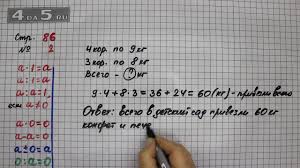 4DA5.RU
Стр. 86
№ 2
a:1=a
a:a=1
если a≠0
a·0=0
a-0=a
a-a=0
a±0=a
0:a=0
4 кор. по 9 кг
3 кор. по 8 кг
Всего - ? кг
9·4+8·3=36+24=60(кг)-привезли всего
Ответ: всего в детский сад привезли 60 кг
конфет и пече